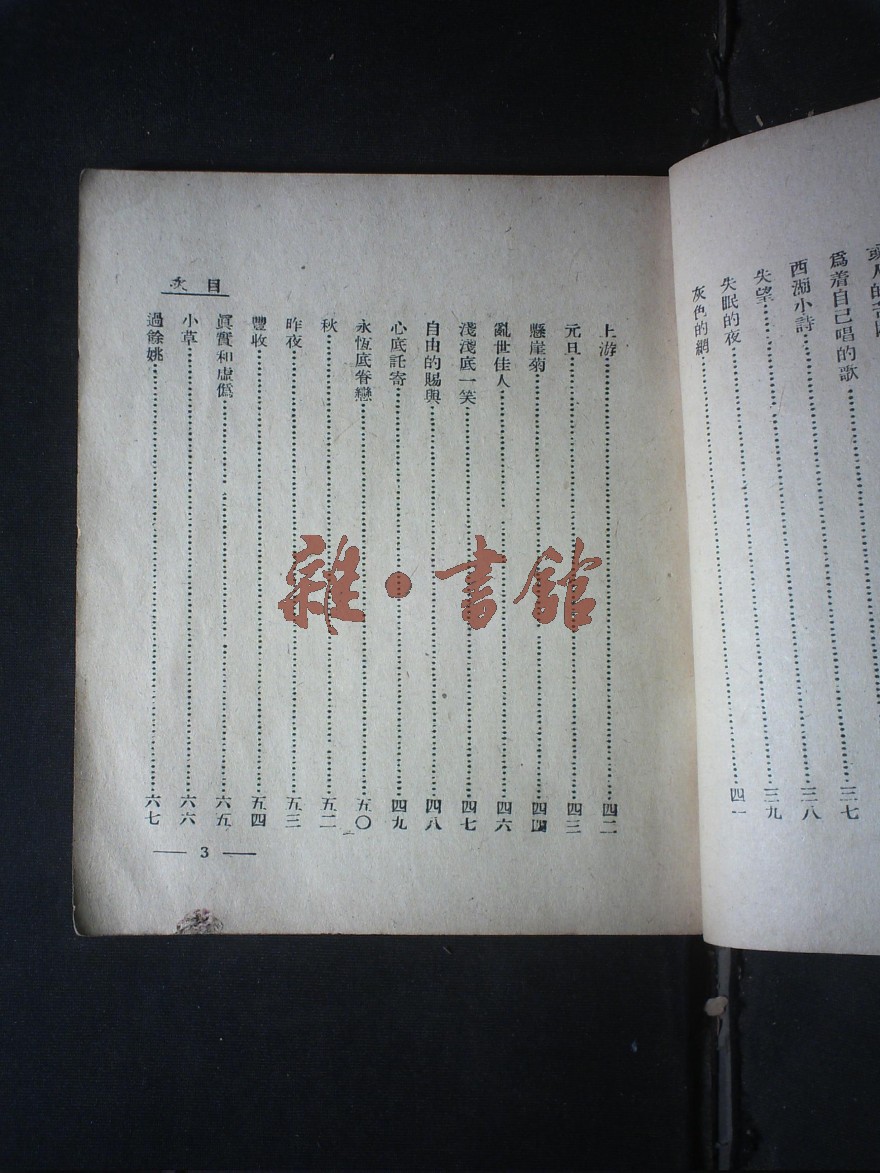 爲着自己唱的歌……三七
西湖小詩……三八
失望……三九
失眠的夜……四一
灰色的網……
目次
上游……四二
元旦……四三
懸崖菊……四四
亂世佳人……四六
淺淺底一笑……四七
自由的賜與……四八
心底託寄……四九
永恆底眷戀……五〇
秋……五二
昨夜……五三
豐收……五四
眞實和虛僞……六五
小草……六六
過餘姚……六七
— 3 —
雜·書館